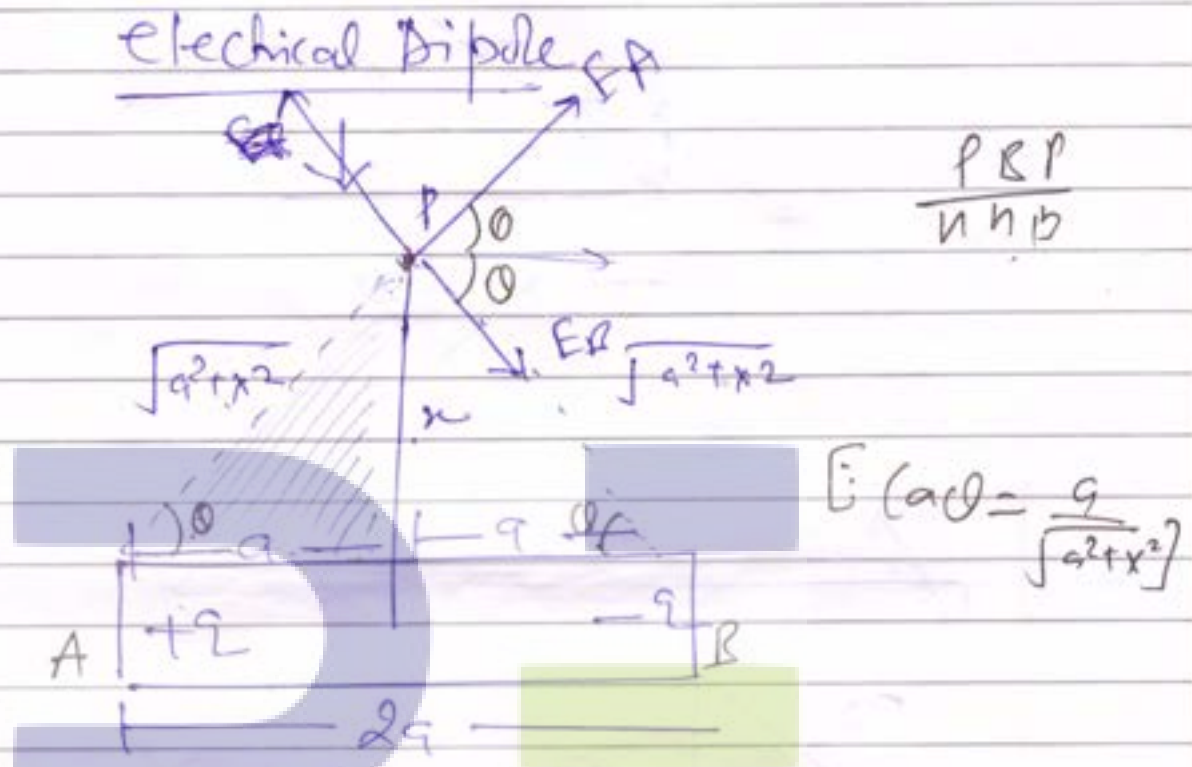 Electrical Dipole
EA
P
θ
θ
EB
√a²+x²
√a²+x²
x
[∵ Cosθ = a/√a²+x²]
θ
a
a
θ
A
+q
-q
B
2a